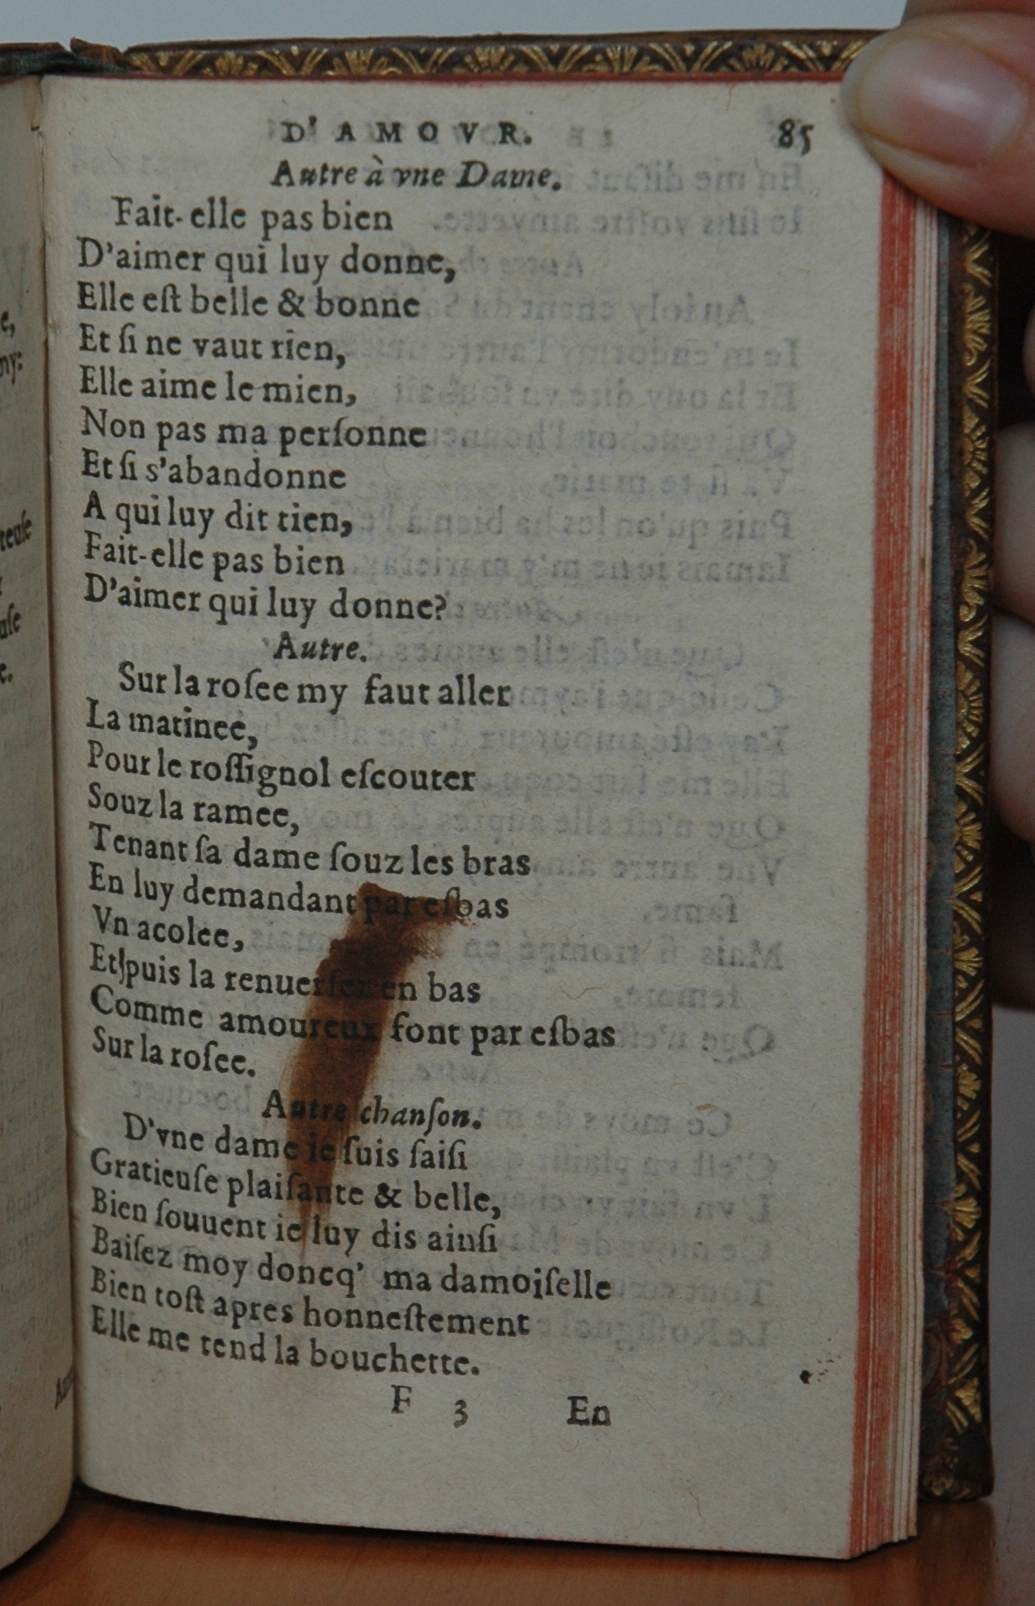 D' A M O V R. 85
Autre à vne Dame.
Fait-elle pas bien
D'aimer qui luy donne,
Elle eſt belle & bonne
Et ſi ne vaut rien,
Elle aime le mien,
Non pas ma perſonne
Et ſi s'abandonne
A qui luy dit tien,
Fait-elle pas bien
D'aimer qui luy donne?
Autre.
Sur la roſee my faut aller
La matinee,
Pour le roſſignol eſcouter
Souz la ramee,
Tenant ſa dame ſouz les bras
En luy demandant par eſbas
Vn acolee,
Et puis la renuerſer en bas
Comme amoureux font par eſbas
Sur la roſee.
Autre chanſon.
D'vne dame ie ſuis ſaiſi
Gratieuſe plaiſante & belle,
Bien ſouuent ie luy dis ainſi
Baiſez moy doncq' ma damoiſelle
Bien toſt apres honneſtement
Elle me tend la bouchette.
F 3 En